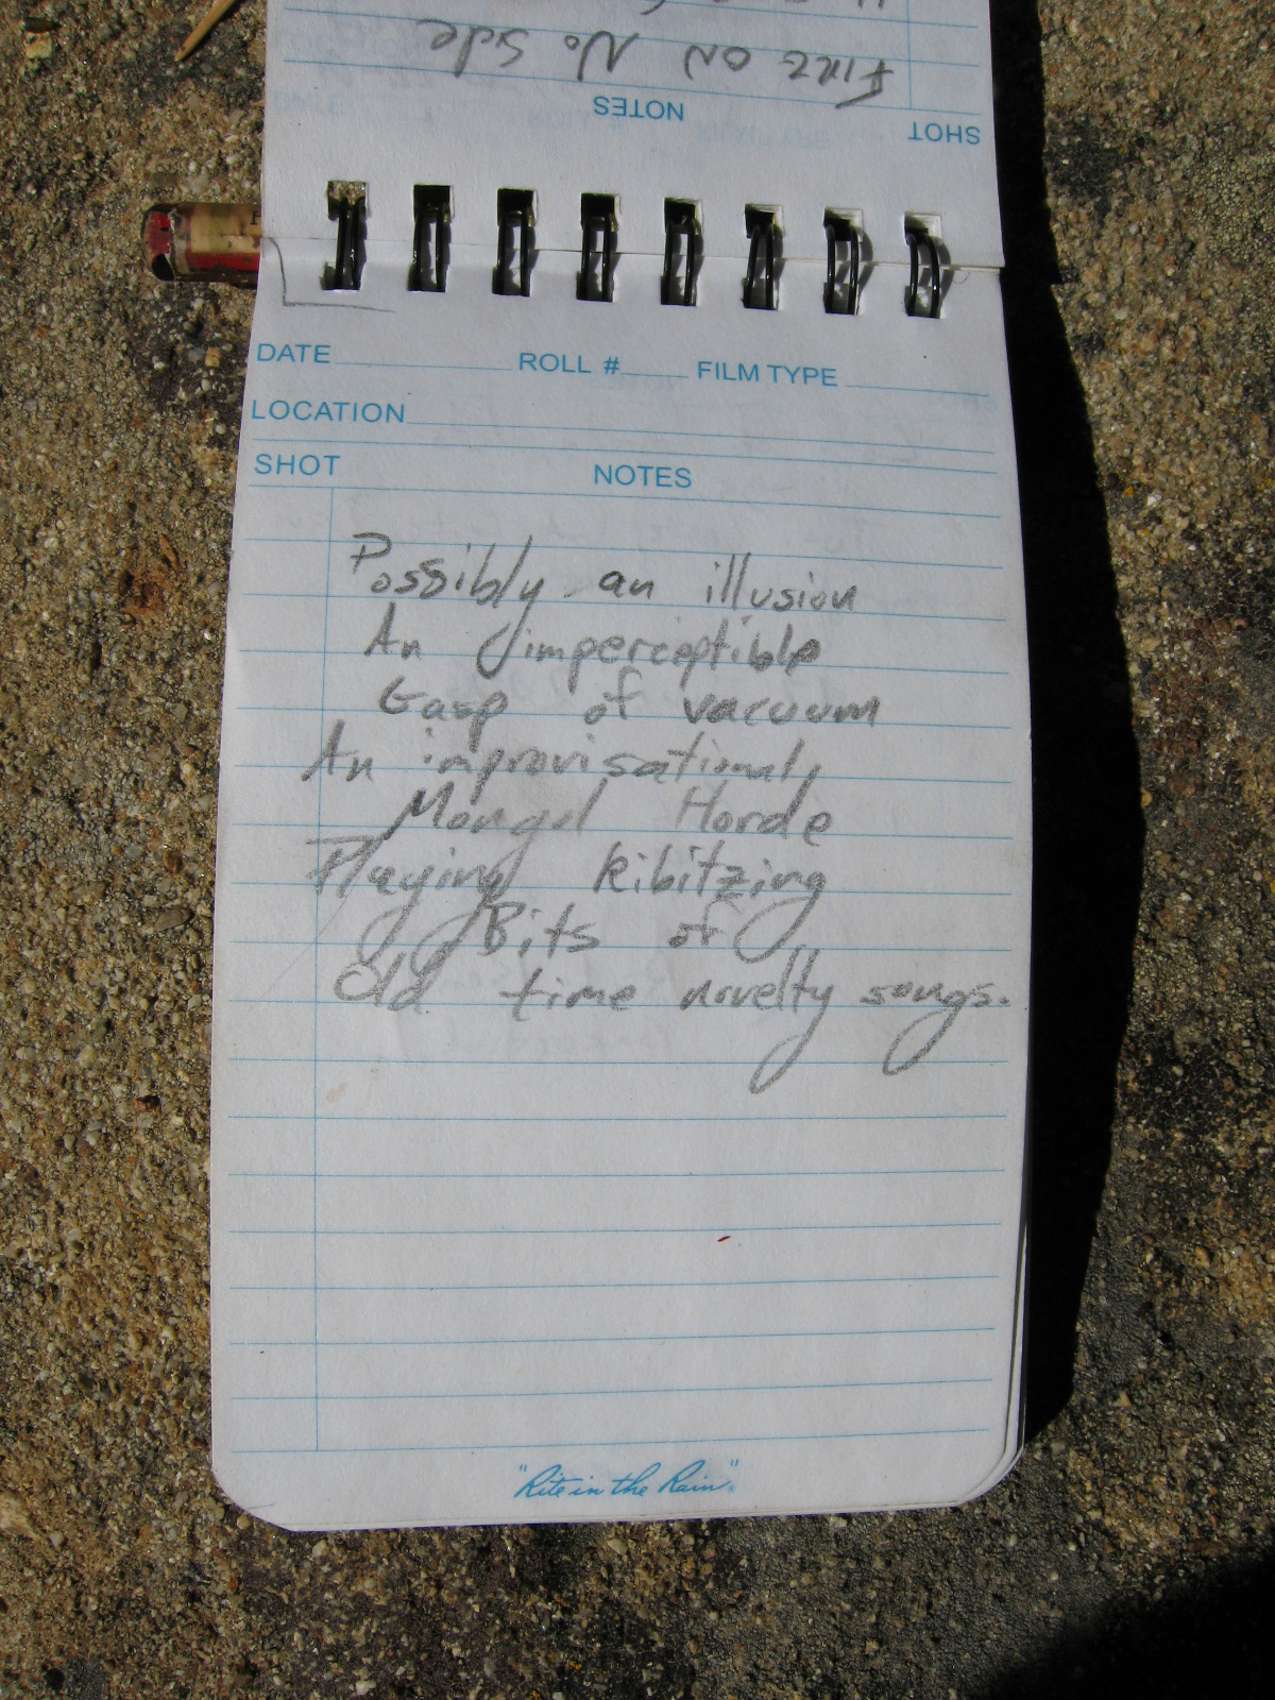 FIRE ON No Side
NOTES
SHOT
DATE ROLL # FILM TYPE
LOCATION
SHOT NOTES
Possibly an illusion
An imperceptible
Gasp of vacuum
An improvisational,
Mongol Horde
Playing kibitzing
Bits of
Old time novelty songs.
"Rite in the Rain"